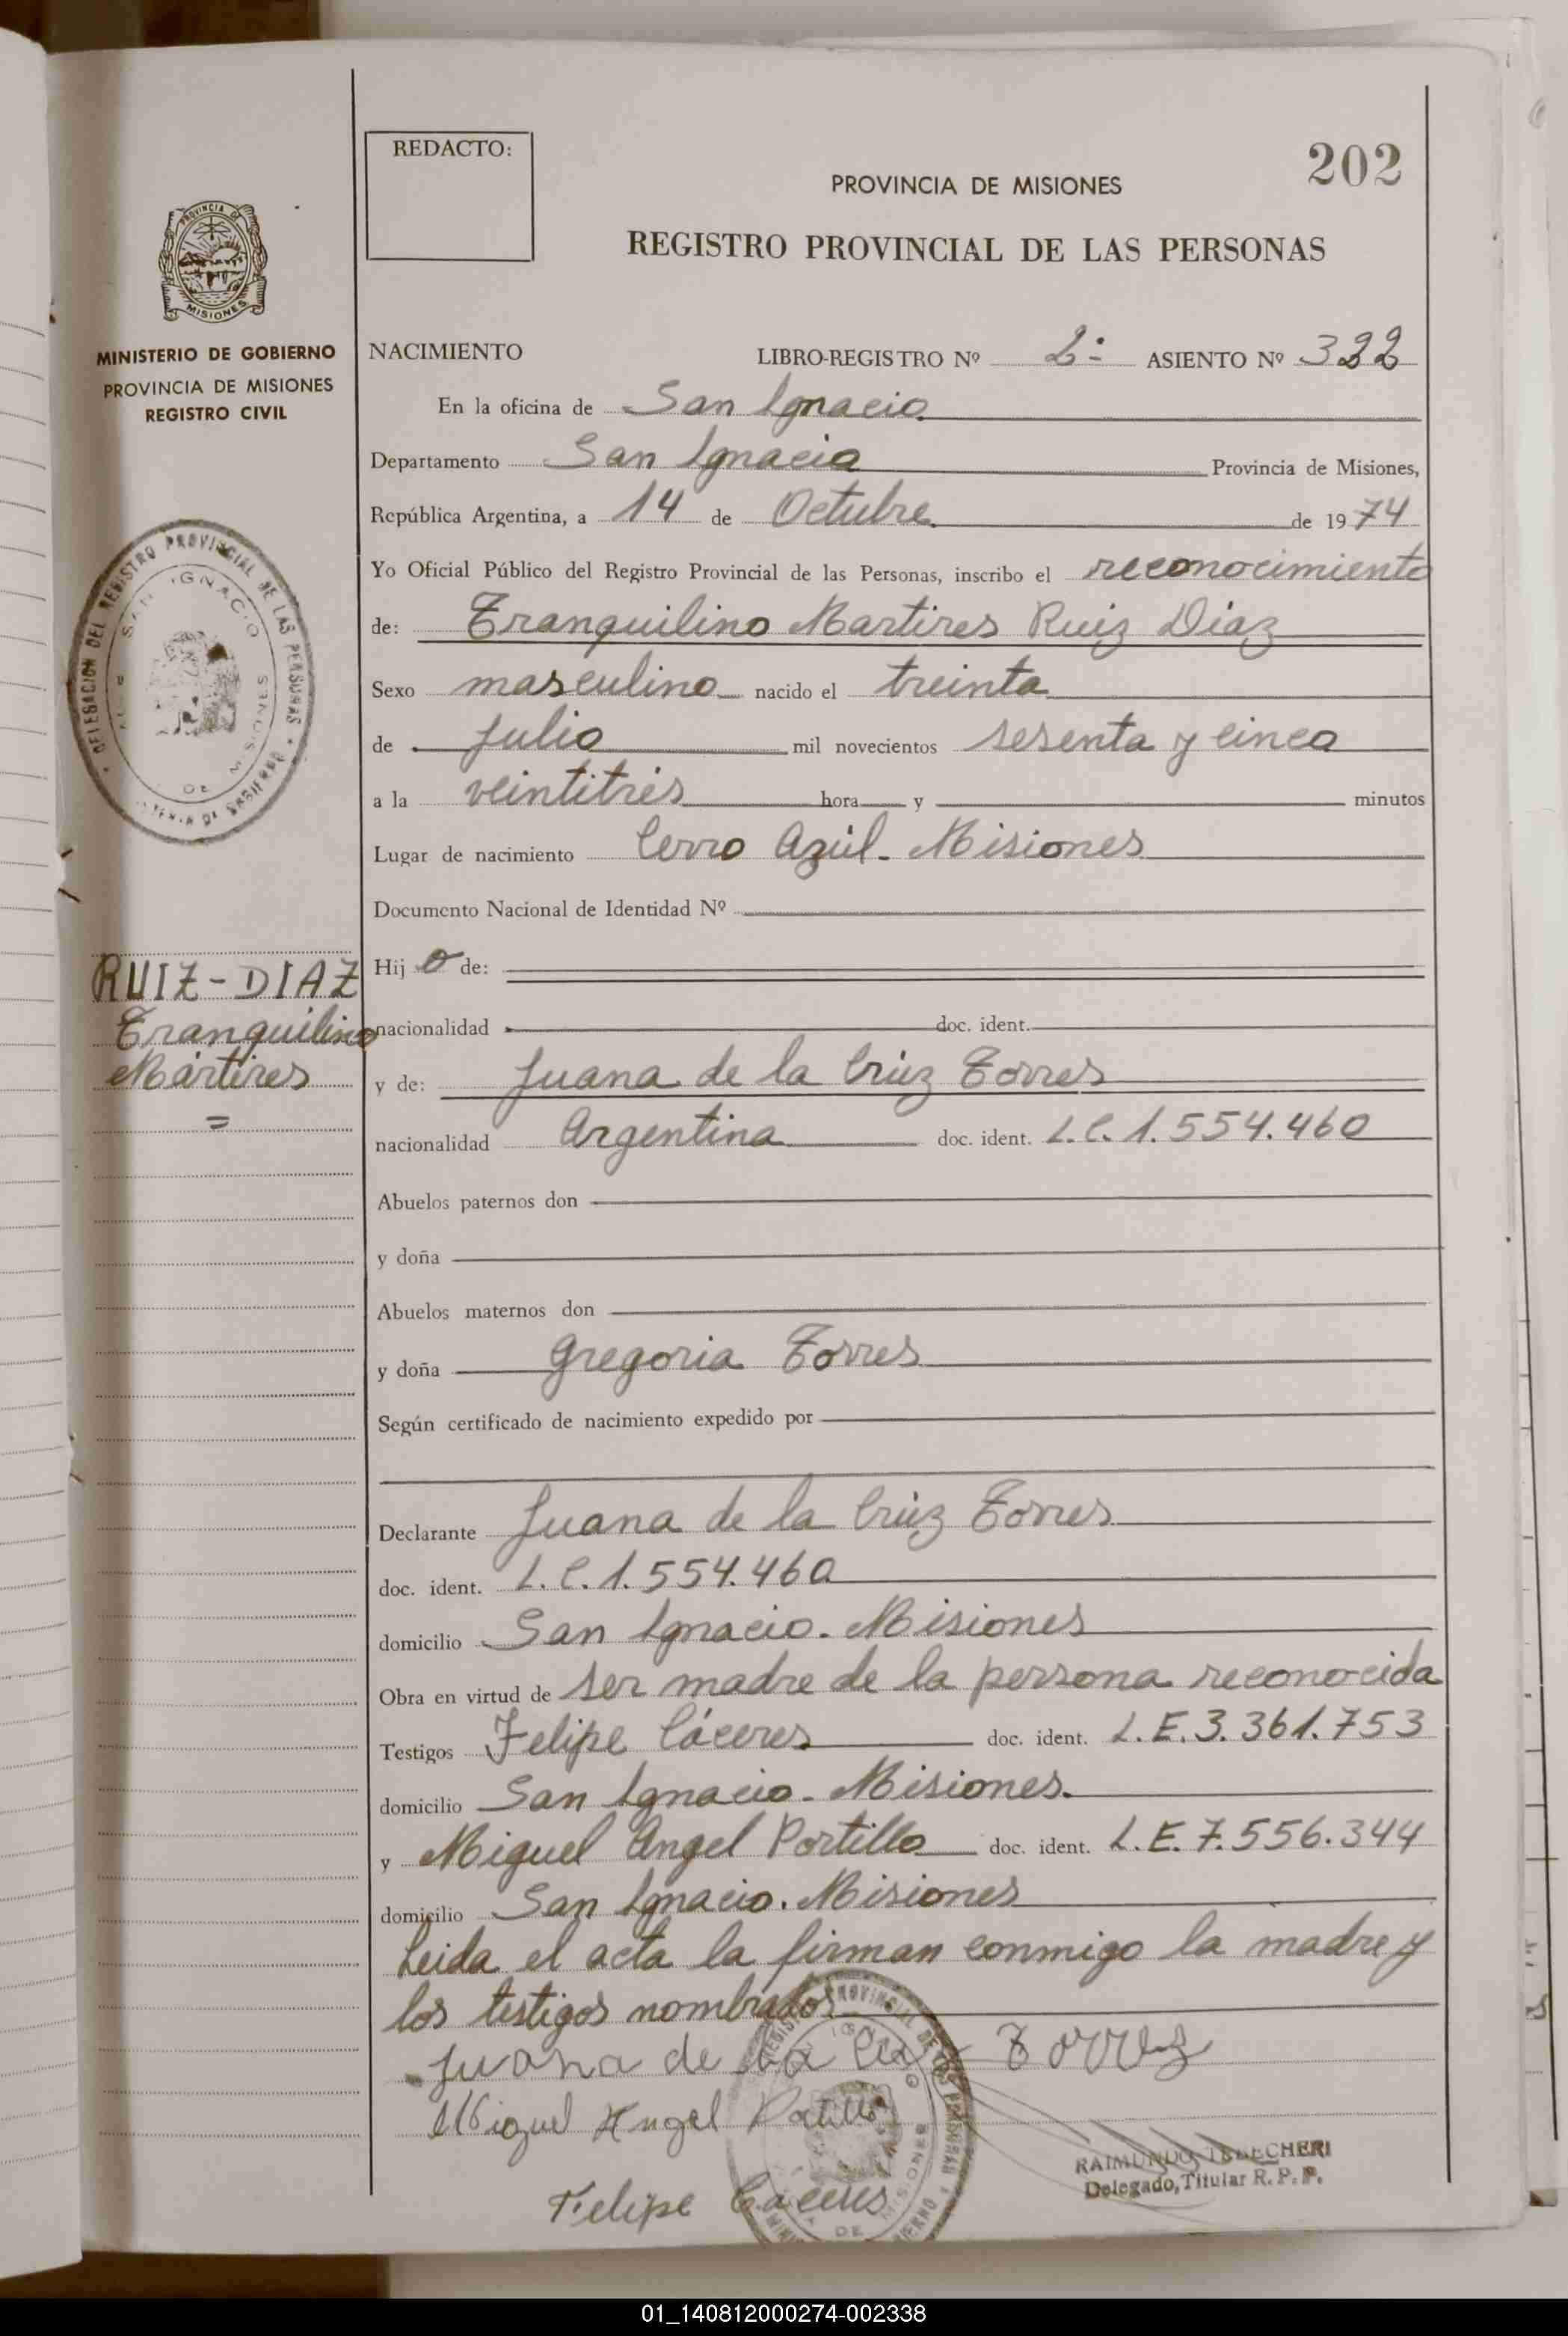 REDACTO:
202
PROVINCIA DE MISIONES
REGISTRO PROVINCIAL DE LAS PERSONAS
PROVINCIA DE
MISIONES
MINISTERIO DE GOBIERNO
PROVINCIA DE MISIONES
REGISTRO CIVIL
NACIMIENTO LIBRO-REGISTRO Nº 2º ASIENTO Nº 322
En la oficina de San Ignacio
Departamento San Ignacio Provincia de Misiones,
República Argentina, a 14 de Octubre de 1974
Yo Oficial Público del Registro Provincial de las Personas, inscribo el reconocimiento
de: Tranquilino Martires Ruiz Diaz
Sexo masculino nacido el treinta
de Julio mil novecientos sesenta y cinco
a la veintitrés hora y minutos
Lugar de nacimiento Cerro Azúl - Misiones
Documento Nacional de Identidad Nº
Hij o de:
nacionalidad doc. ident.
y de: Juana de la Crúz Torres
nacionalidad Argentina doc. ident. L.C. 1.554.460
Abuelos paternos don
y doña
Abuelos maternos don
y doña Gregoria Torres
Según certificado de nacimiento expedido por
Declarante Juana de la Crúz Torres
doc. ident. L.C. 1.554.460
domicilio San Ignacio. Misiones
Obra en virtud de ser madre de la persona reconocida
Testigos Felipe Cáceres doc. ident. L.E. 3.361.753
domicilio San Ignacio - Misiones.
y Miguel Angel Portillo doc. ident. L.E. 7.556.344
domicilio San Ignacio. Misiones
Leida el acta la firman conmigo la madre y
los testigos nombrados
Juana de la Torrez
Miguel Angel Portillo
Felipe Caceres
RAIMUNDO
Delegado, Titular R. P. P.
DELEGACION DEL REGISTRO PROVINCIAL DE LAS PERSONAS
SAN IGNACIO
DE MISIONES
RUIZ-DIAZ
Tranquilino
Mártires
=
REGISTRO PROVINCIAL DE LAS PERSONAS
DE MISIONES
01_140812000274-002338